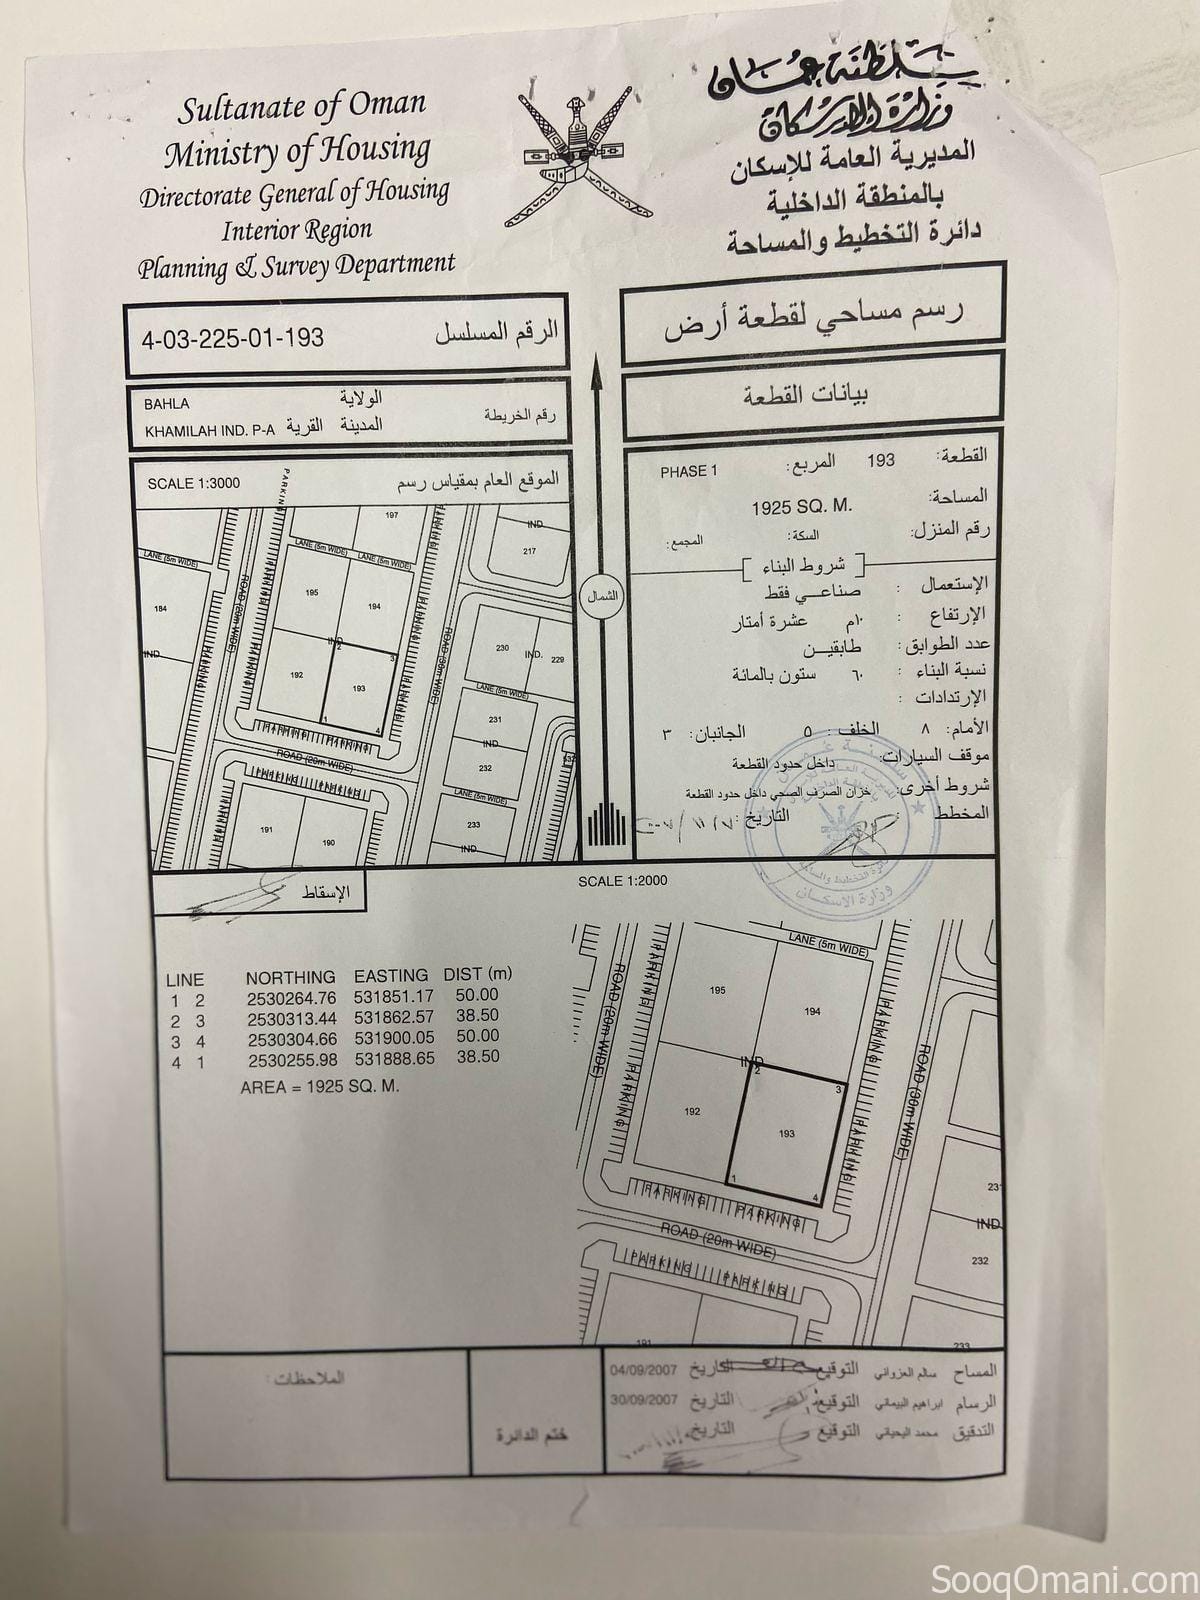 Sultanate of Oman
Ministry of Housing
Directorate General of Housing
Interior Region
Planning & Survey Department
سلطنة عمان
وزارة الإسكان
المديرية العامة للإسكان
بالمنطقة الداخلية
دائرة التخطيط والمساحة
رسم مساحي لقطعة أرض
4-03-225-01-193 الرقم المسلسل
بيانات القطعة
BAHLA الولاية
رقم الخريطة
KHAMILAH IND. P-A المدينة القرية
القطعة: 193 المربع: PHASE 1
المساحة: 1925 SQ. M.
رقم المنزل: السكة: المجمع:
شروط البناء
الإستعمال : صناعـــي فقط
الإرتفاع : ١٠م عشرة أمتار
عدد الطوابق: طابقيـــن
نسبة البناء : ٦٠ ستون بالمائة
الإرتدادات :
الأمام: ٨ الخلف: ٥ الجانبان: ٣
موقف السيارات: داخل حدود القطعة
شروط أخرى: خزان الصرف الصحي داخل حدود القطعة
المخطط : التاريخ:
وزارة الاسكان
SCALE 1:3000 الموقع العام بمقياس رسم
PARKING
197
IND
217
LANE (5m WIDE)
LANE (5m WIDE)
LANE (5m WIDE)
184
195
194
ROAD (20m WIDE)
PARKING
PARKING
IND
IND
2
3
192
193
1
4
230
IND.
229
ROAD (30m WIDE)
LANE (5m WIDE)
231
IND
232
PARKING
PARKING
ROAD (20m WIDE)
PARKING
PARKING
191
190
LANE (5m WIDE)
233
IND
532
الشمال
الإسقاط
SCALE 1:2000
LINE NORTHING EASTING DIST (m)
1 2 2530264.76 531851.17 50.00
2 3 2530313.44 531862.57 38.50
3 4 2530304.66 531900.05 50.00
4 1 2530255.98 531888.65 38.50
AREA = 1925 SQ. M.
LANE (5m WIDE)
PARKING
ROAD (20m WIDE)
195
194
PARKING
IND
2
3
192
193
1
4
PARKING
PARKING
ROAD (30m WIDE)
PARKING
PARKING
ROAD (20m WIDE)
PARKING
PARKING
191
231
IND
232
233
المساح سالم العزواني التوقيع التاريخ 04/09/2007
الرسام ابراهيم البيماني التوقيع: التاريخ 30/09/2007
التدقيق محمد اليحيائي التوقيع التاريخ
ختم الدائرة
الملاحظات :
SooqOmani.com